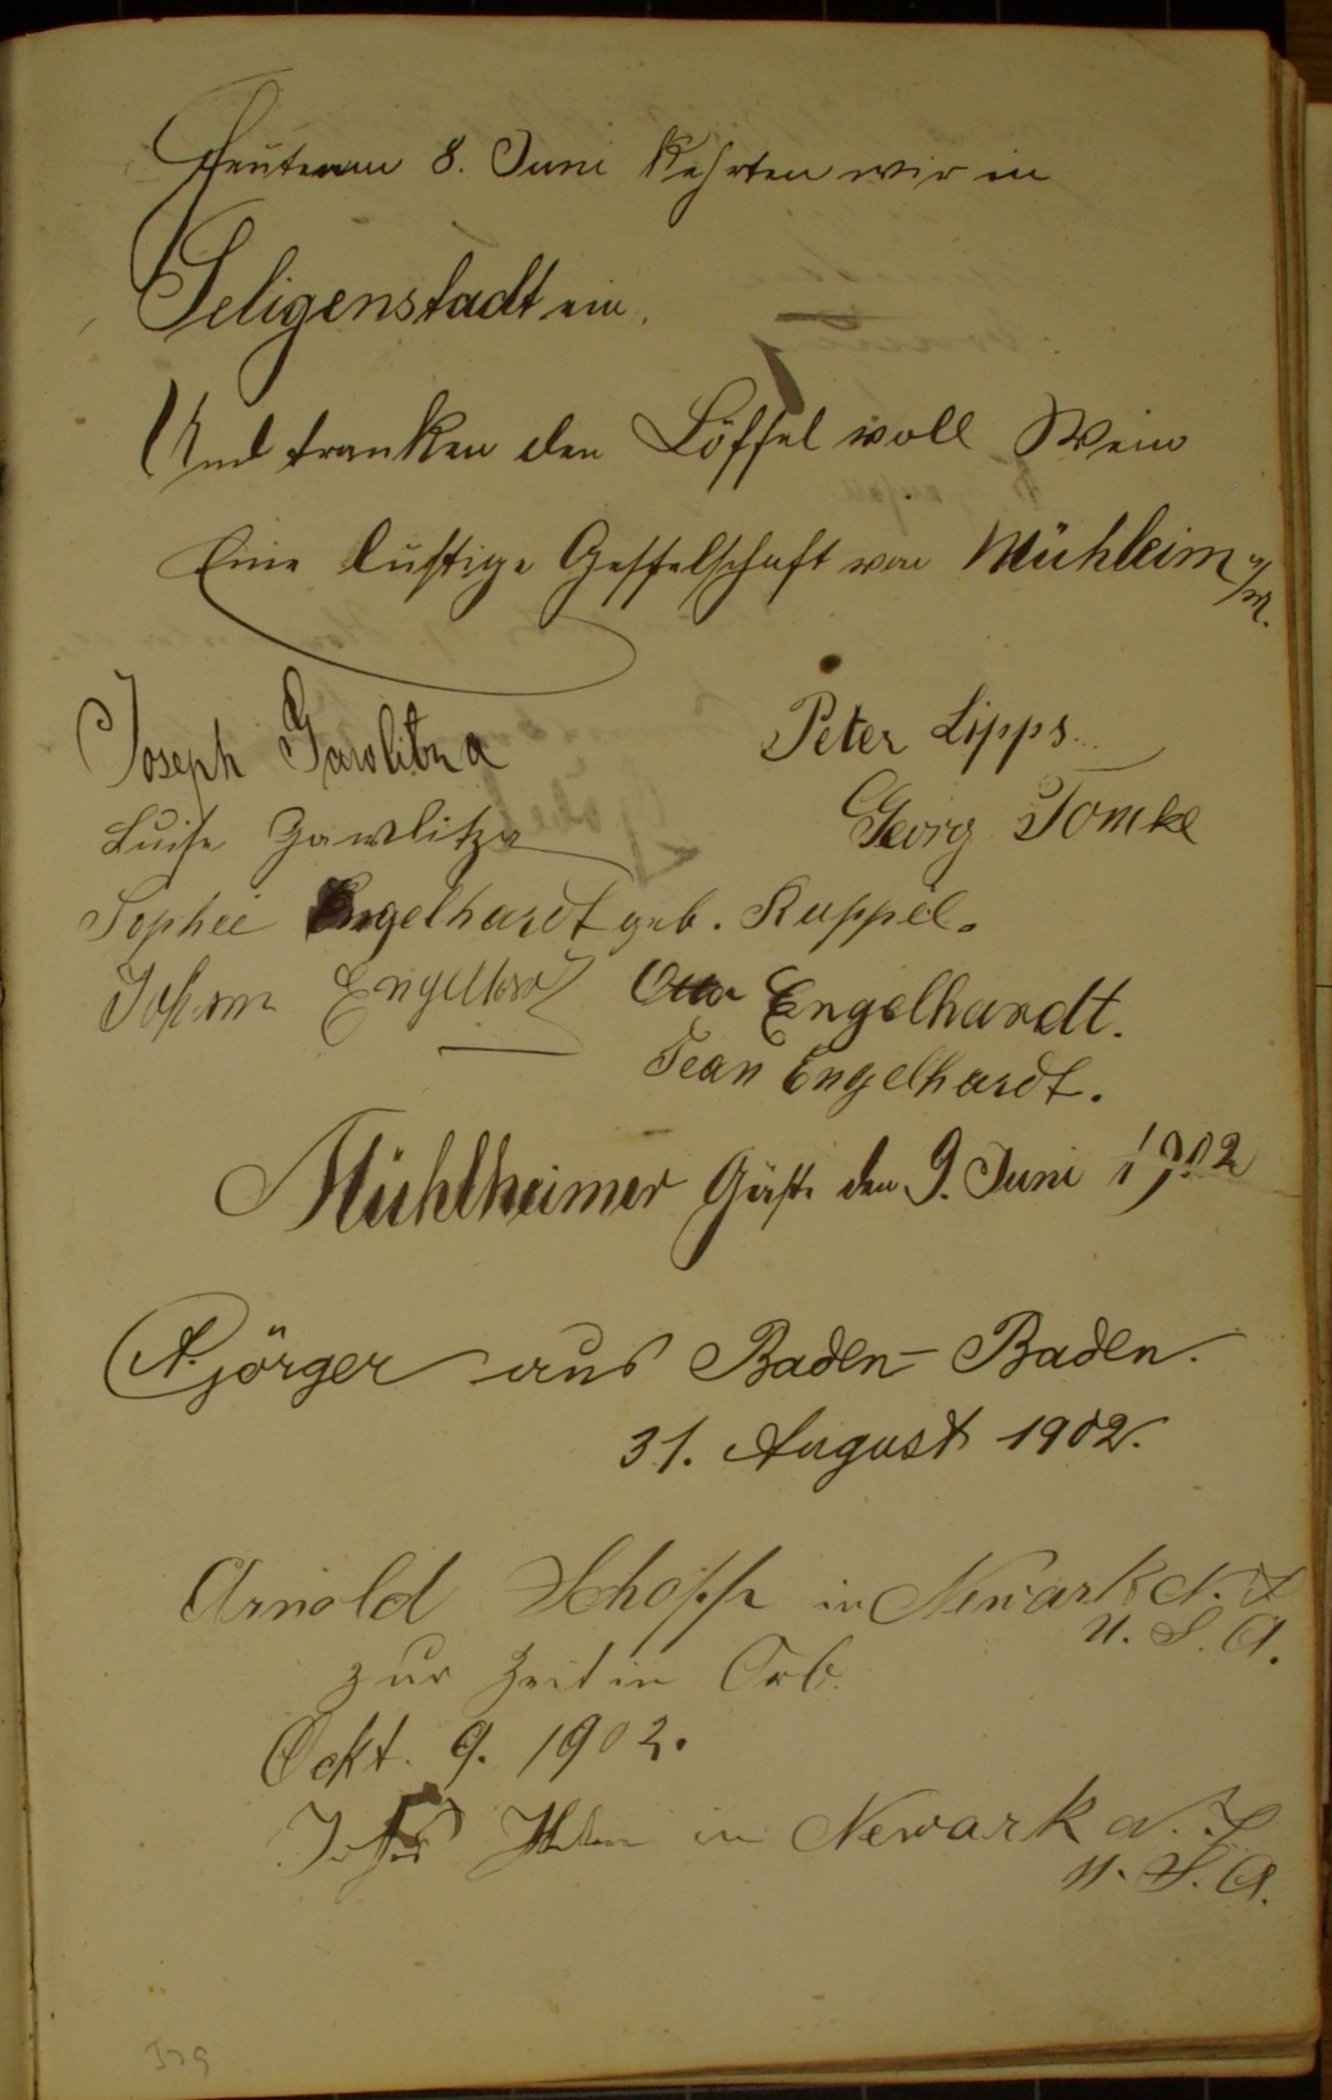 Heute am 8. Juni kehrten wir in
Seligenstadt ein.
Und tranken den Löffel voll Wein
Eine lustige Gesselschaft von Mühleim a/M.
Joseph
Peter Lipps.
Georg Tomke
Luise Zawlitza
Sophie Engelhardt geb. Ruppel.
Johann Engelhardt
Otto Engelhardt.
Jean Engelhardt.
Mühlheimer Gäste den 9. Juni 1902
A. Jörger aus Baden-Baden.
31. August 1902.
Arnold Schopp in Newark N. J
U. S. A.
zur Zeit in Orb.
Ockt. 9. 1902.
in Newark N. J
U. S. A.